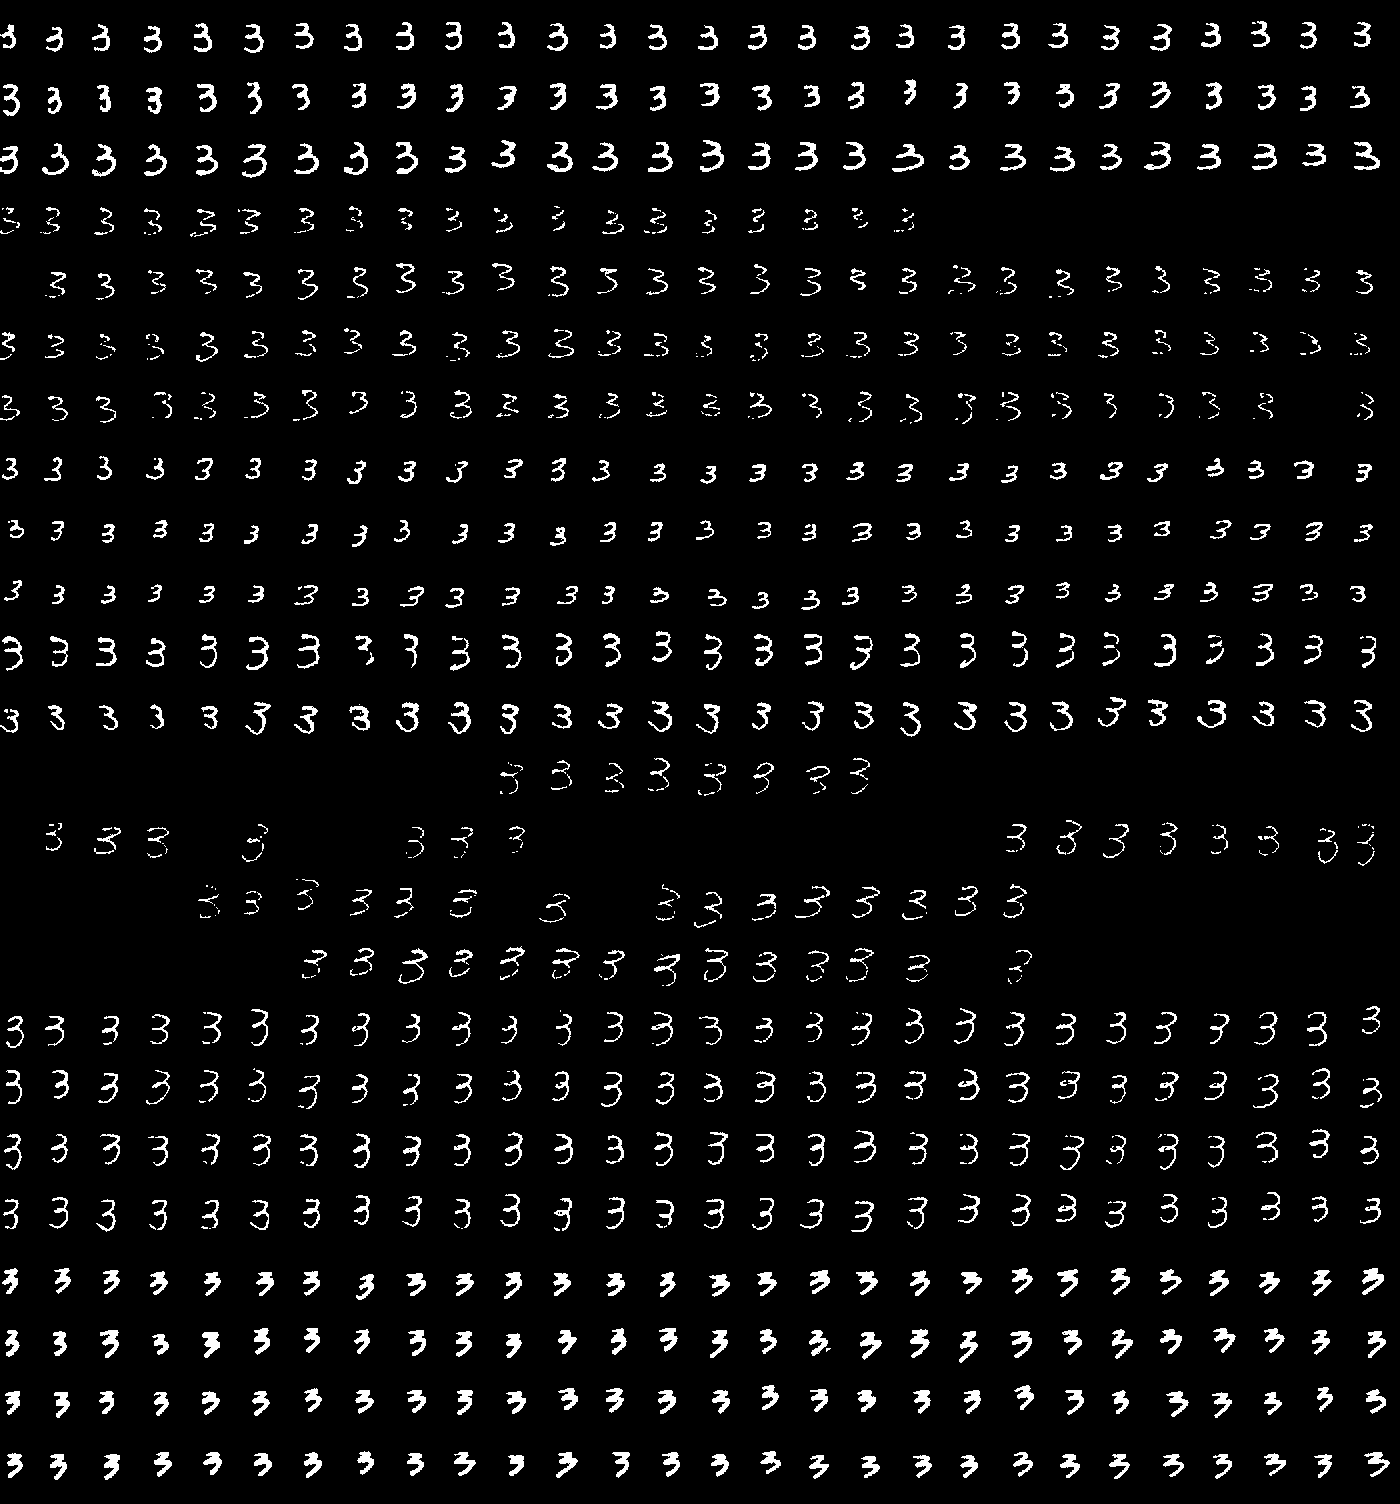 3 3 3 3 3 3 3 3 3 3 3 3 3 3 3 3 3 3 3 3 3 3 3 3 3 3 3 3
3 3 3 3 3 3 3 3 3 3 3 3 3 3 3 3 3 3 3 3 3 3 3 3 3 3 3 3
3 3 3 3 3 3 3 3 3 3 3 3 3 3 3 3 3 3 3 3 3 3 3 3 3 3 3 3
3 3 3 3 3 3 3 3 3 3 3 3 3 3 3 3 3 3 3
3 3 3 3 3 3 3 3 3 3 3 3 3 3 3 3 3 3 3 3 3 3 3 3 3 3 3
3 3 3 3 3 3 3 3 3 3 3 3 3 3 3 3 3 3 3 3 3 3 3 3 3 3 3 3
3 3 3 3 3 3 3 3 3 3 3 3 3 3 3 3 3 3 3 3 3 3 3 3 3 3 3
3 3 3 3 3 3 3 3 3 3 3 3 3 3 3 3 3 3 3 3 3 3 3 3 3 3 3 3
3 3 3 3 3 3 3 3 3 3 3 3 3 3 3 3 3 3 3 3 3 3 3 3 3 3 3 3
3 3 3 3 3 3 3 3 3 3 3 3 3 3 3 3 3 3 3 3 3 3 3 3 3 3 3 3
3 3 3 3 3 3 3 3 3 3 3 3 3 3 3 3 3 3 3 3 3 3 3 3 3 3 3 3
3 3 3 3 3 3 3 3 3 3 3 3 3 3 3 3 3 3 3 3 3 3 3 3 3 3 3 3
3 3 3 3 3 3 3 3
3 3 3 3 3 3 3 3 3 3 3 3 3 3 3
3 3 3 3 3 3 3 3 3 3 3 3 3 3 3
3 3 3 3 3 3 3 3 3 3 3 3 3 3
3 3 3 3 3 3 3 3 3 3 3 3 3 3 3 3 3 3 3 3 3 3 3 3 3 3 3 3
3 3 3 3 3 3 3 3 3 3 3 3 3 3 3 3 3 3 3 3 3 3 3 3 3 3 3 3
3 3 3 3 3 3 3 3 3 3 3 3 3 3 3 3 3 3 3 3 3 3 3 3 3 3 3 3
3 3 3 3 3 3 3 3 3 3 3 3 3 3 3 3 3 3 3 3 3 3 3 3 3 3 3 3
3 3 3 3 3 3 3 3 3 3 3 3 3 3 3 3 3 3 3 3 3 3 3 3 3 3 3 3
3 3 3 3 3 3 3 3 3 3 3 3 3 3 3 3 3 3 3 3 3 3 3 3 3 3 3 3
3 3 3 3 3 3 3 3 3 3 3 3 3 3 3 3 3 3 3 3 3 3 3 3 3 3 3 3
3 3 3 3 3 3 3 3 3 3 3 3 3 3 3 3 3 3 3 3 3 3 3 3 3 3 3 3